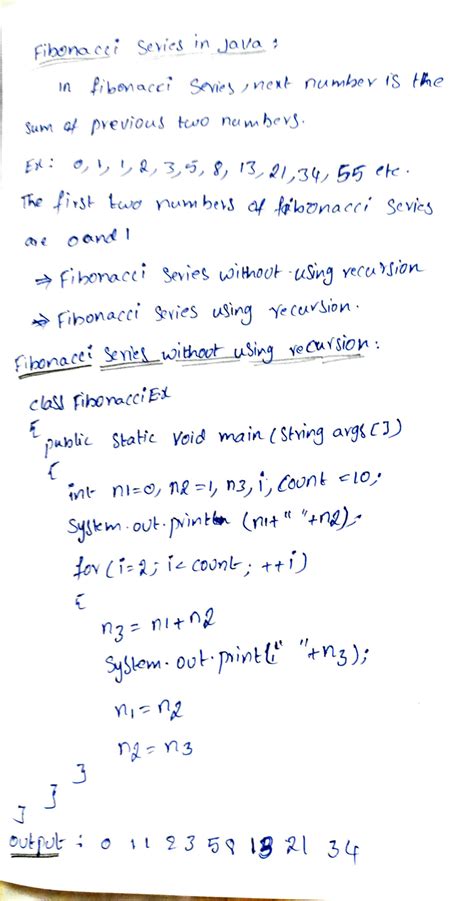 Fibonacci Series in Java :
in fibonacci Series, next number is the
sum of previous two numbers.
Ex : 0, 1, 1, 2, 3, 5, 8, 13, 21, 34, 55 etc.
The first two numbers of fibonacci series
are 0 and 1
⇒ Fibonacci Series without using recursion
⇒ Fibonacci Series using recursion.
Fibonacci Series without using recursion :
class FibonacciEx
{
public static void main (String args [])
{
int n1=0, n2=1, n3, i, count =10;
System.out.println (n1+" "+n2);
for (i=2; i< count; ++i)
{
n3 = n1+n2
System.out.print(" "+n3);
n1 = n2
n2 = n3
}
}
}
output : 0 1 1 2 3 5 8 13 21 34